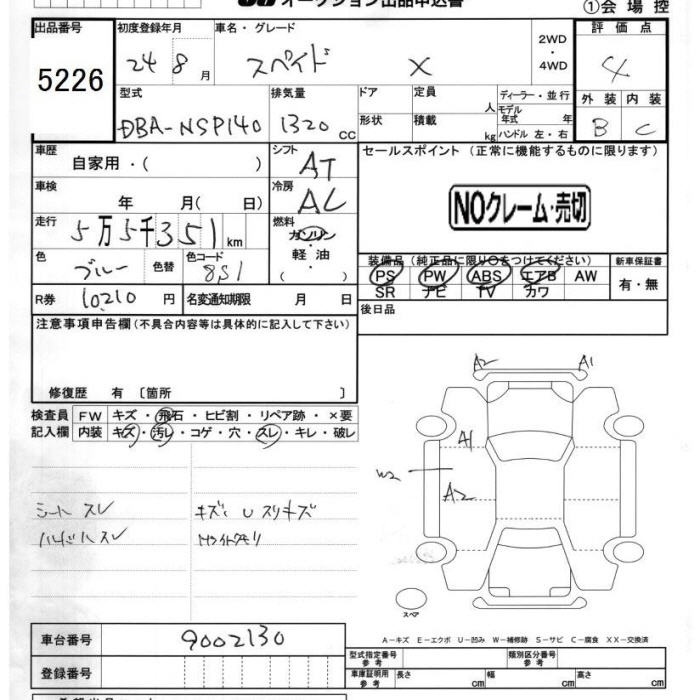 オークション出品申込書
①会場控
出品番号 初度登録年月 車名・グレード 2WD・4WD 評価点
5226 24 8月 スペイド X 4
型式 排気量 ドア 定員 人 ディーラー・並行 外装 内装
DBA-NSP140 1320 cc 形状 積載 kg モデル年式 年 ハンドル 左・右 B C
車歴 自家用・( ) シフト AT セールスポイント (正常に機能するものに限ります)
車検 年 月( 日) 冷房 AC NOクレーム・売切
走行 5万5千351km 燃料 ガソリン・軽油・( )
色 ブルー 色替 色コード 8S1
装備品 (純正品に限り○をつけてください) 新車保証書
PS PW ABS エアB AW 有・無
SR ナビ TV カワ
R券 10210円 名変通知期限 月 日 後日品
注意事項申告欄(不具合内容等は具体的に記入して下さい)
修復歴 有 〔箇所 〕
検査員 FW キズ・飛石・ヒビ割・リペア跡・×要
記入欄 内装 キズ・汚レ・コゲ・穴・スレ・キレ・破レ
A2 A1
A1
W2
A2
シートスレ キズ
ハンドルスレ
スペア
A-キズ E-エクボ U-凹み W-補修跡 S-サビ C-腐食 XX-交換済
車台番号 9002130
登録番号
型式指定番号 参考 類別区分番号 参考
車庫証明用 参考 長さ cm 幅 cm 高さ cm